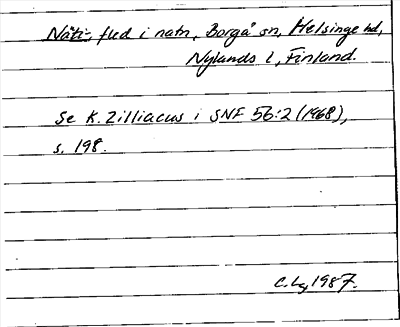 Näti-, fled i natn, Borgå sn, Helsinge hd,
Nylands l, Finland.
Se K. Zilliacus i SNF 56:2 (1968),
s. 198.
C. Lg 1987.